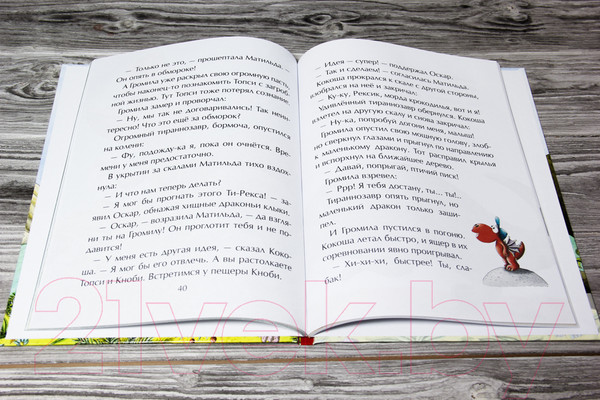 — Только не это, — прошептала Матильда. —
Он опять в обмороке!
А Громила уже раскрыл свою огромную пасть,
чтобы наконец-то познакомить Топси с загроб-
ной жизнью. Тут Топси тоже потерял сознание.
Громила замер и проворчал:
— Ну, мы так не договаривались! Так неин-
тересно! Что это ещё за обморок?
Огромный тираннозавр, бормоча, опустился
на колени:
— Фу, подожду-ка я, пока он очнётся. Вре-
мени у меня предостаточно.
В укрытии за скалами Матильда тихо вздох-
нула:
— И что нам теперь делать?
— Я мог бы прогнать этого Ти-Рекса! — за-
явил Оскар, обнажая хищные драконьи клыки.
— Оскар, — возразила Матильда, — да взгля-
ни ты на Громилу! Он проглотит тебя и не по-
давится!
— У меня есть другая идея, — сказал Коко-
ша. — Я мог бы его отвлечь. А вы растолкаете
Топси и Кноби. Встретимся у пещеры Кноби.
40
— Идея — супер! — поддержал Оскар.
— Так и сделаем! — согласилась Матильда.
Кокоша прокрался к скале с другой стороны,
взобрался на неё и закричал:
— Ку-ку, Рексик, морда крокодилья, вот и я!
Удивлённый тираннозавр обернулся. Кокоша
взлетел на другую скалу и снова закричал:
— Ну-ка, попробуй догони меня, малыш!
Громила опустил свою мощную голову, злоб-
но сверкнул глазами и прыгнул по направлению
к маленькому дракону. Тот расправил крылья
и вспорхнул на ближайшее дерево.
— Давай, попрыгай, птичий писк!
Громила взревел:
— Ррр! Я тебя достану, ты... ты!..
Тираннозавр опять прыгнул, но
маленький дракон только заши-
пел.
И Громила пустился в погоню.
Кокоша летал быстро, и ящер в их
соревновании явно проигрывал.
— Хи-хи-хи, быстрее! Ты, сла-
бак!
21vek.by